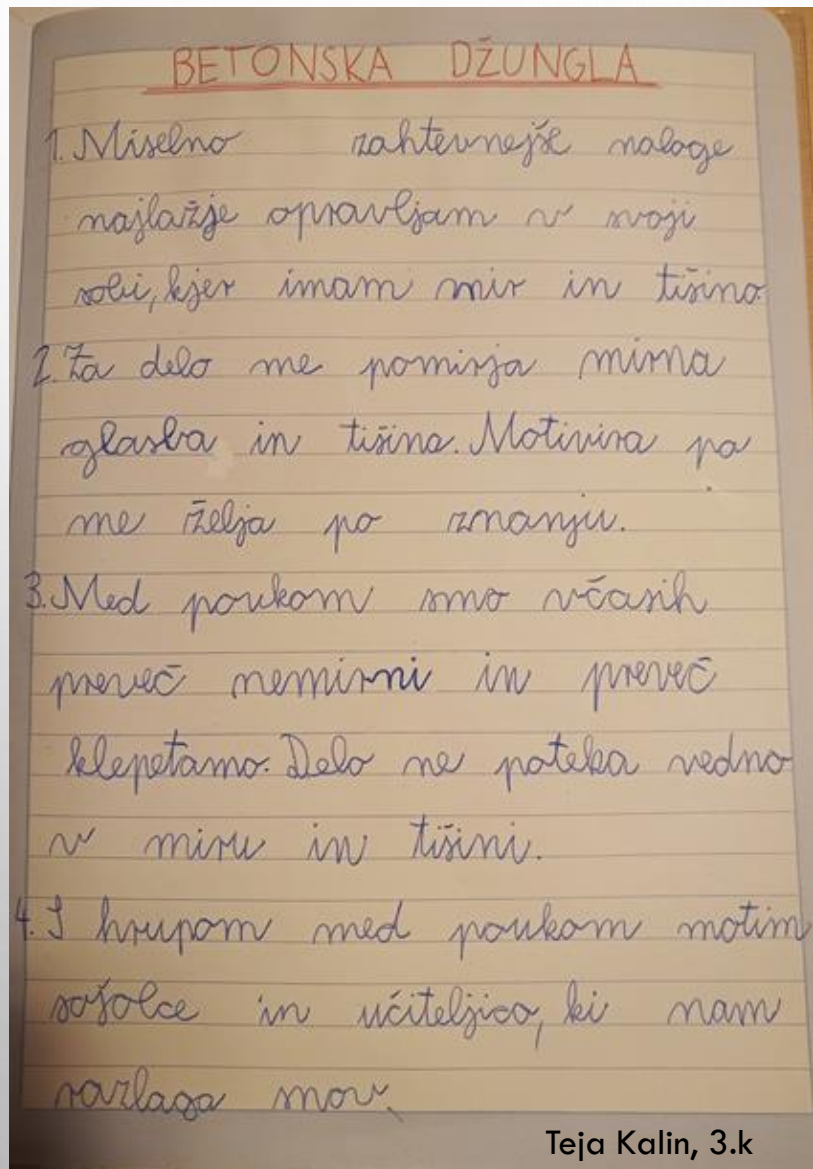 BETONSKA DŽUNGLA
1. Miselno zahtevnejše naloge
najlažje opravljam v svoji
sobi, kjer imam mir in tišino.
2. Za delo me pomirja mirna
glasba in tišina. Motivira pa
me želja po znanju.
3. Med poukom smo včasih
preveč nemirni in preveč
klepetamo. Delo ne poteka vedno
v miru in tišini.
4. S hrupom med poukom motim
sošolce in učiteljico, ki nam
razlaga snov.
Teja Kalin, 3.k